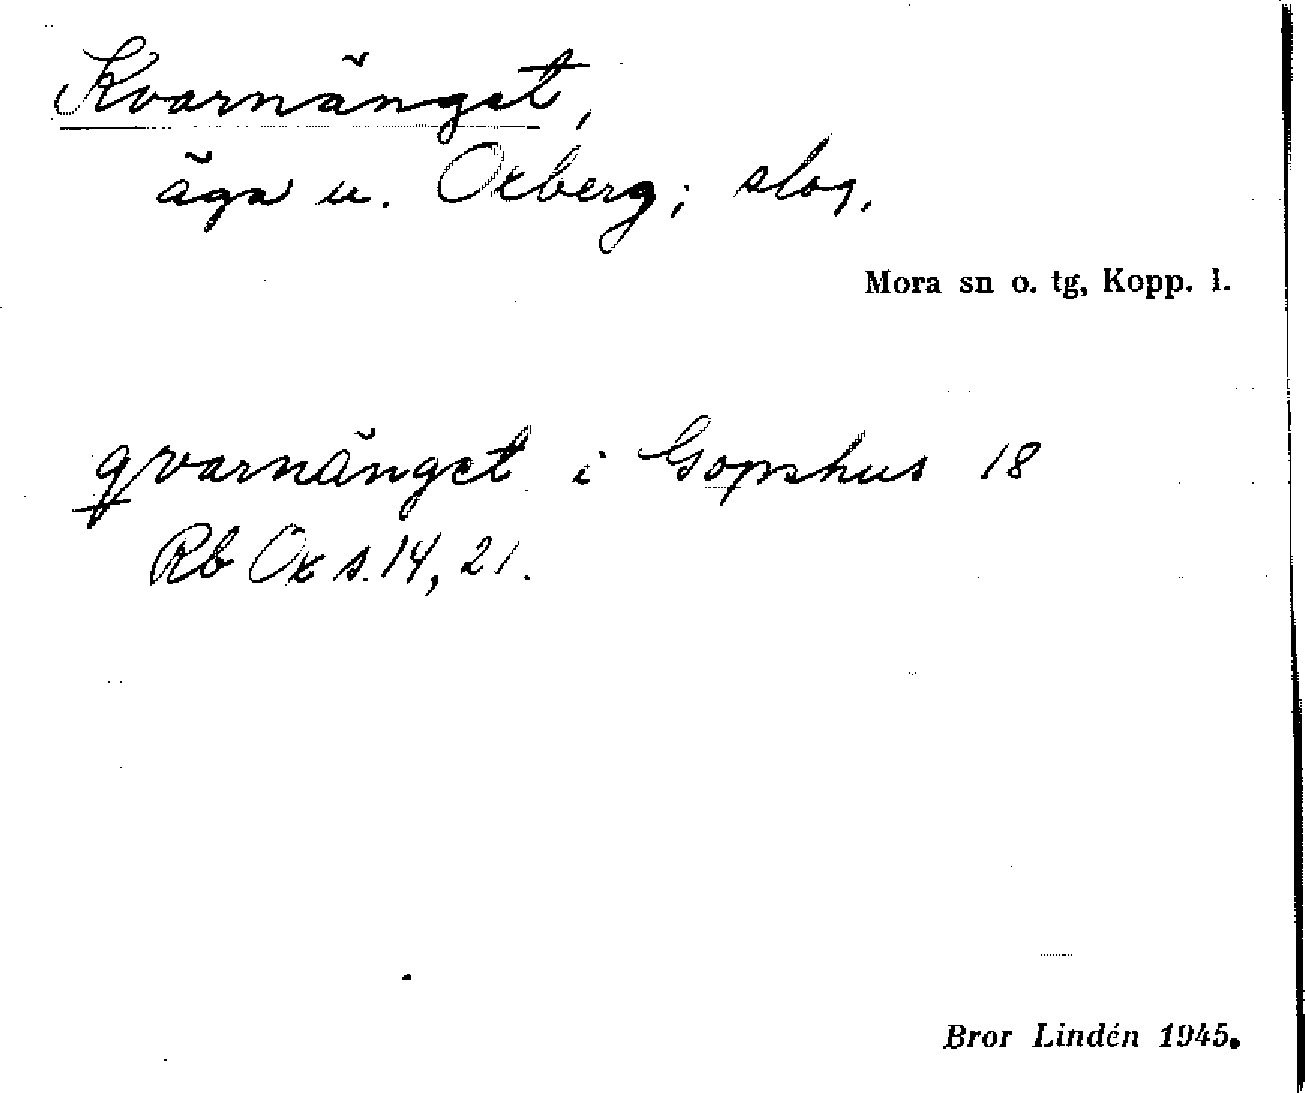 Kvarnänget,
äga u. Oxberg; slog.
Mora sn o. tg, Kopp. l.
qvarnänget i Gopshus 18
Rb Ox s. 14, 21.
Bror Lindén 1945.